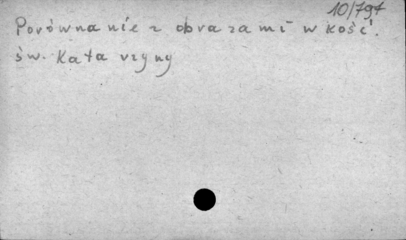 10/797
Porównanie z obrazami w kość.
św. Katarzyny